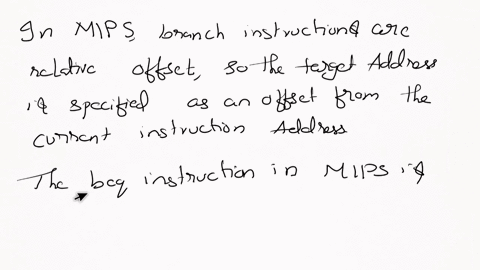 In MIPS, branch instructions are
relative offset, so the target Address
is specified as an offset from the
current instruction Address
The beq instruction in MIPS is